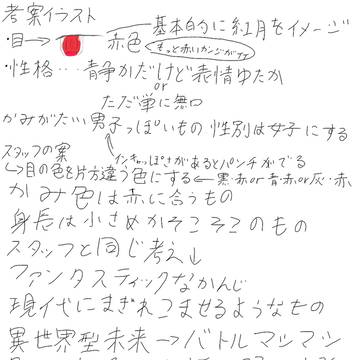 考案イラスト
基本的に紅月をイメージ
・目→ 赤色
もっと赤いカンジがする
・性格…静かだけど表情ゆたか
or
ただ単に無口
かみがたい男子っぽいもの 性別は女子にする
スタッフの案
インキャっぽさがあるとパンチがでる
→目の色を片方違う色にする←黒・赤or青・赤or灰・赤、
かみ色は赤に合うもの
身長は小さめかそこそこのもの
スタッフと同じ考え↓
ファンタスティックなかんじ
現代にまぎれこませるようなもの
異世界型未来→バトルマシマシ